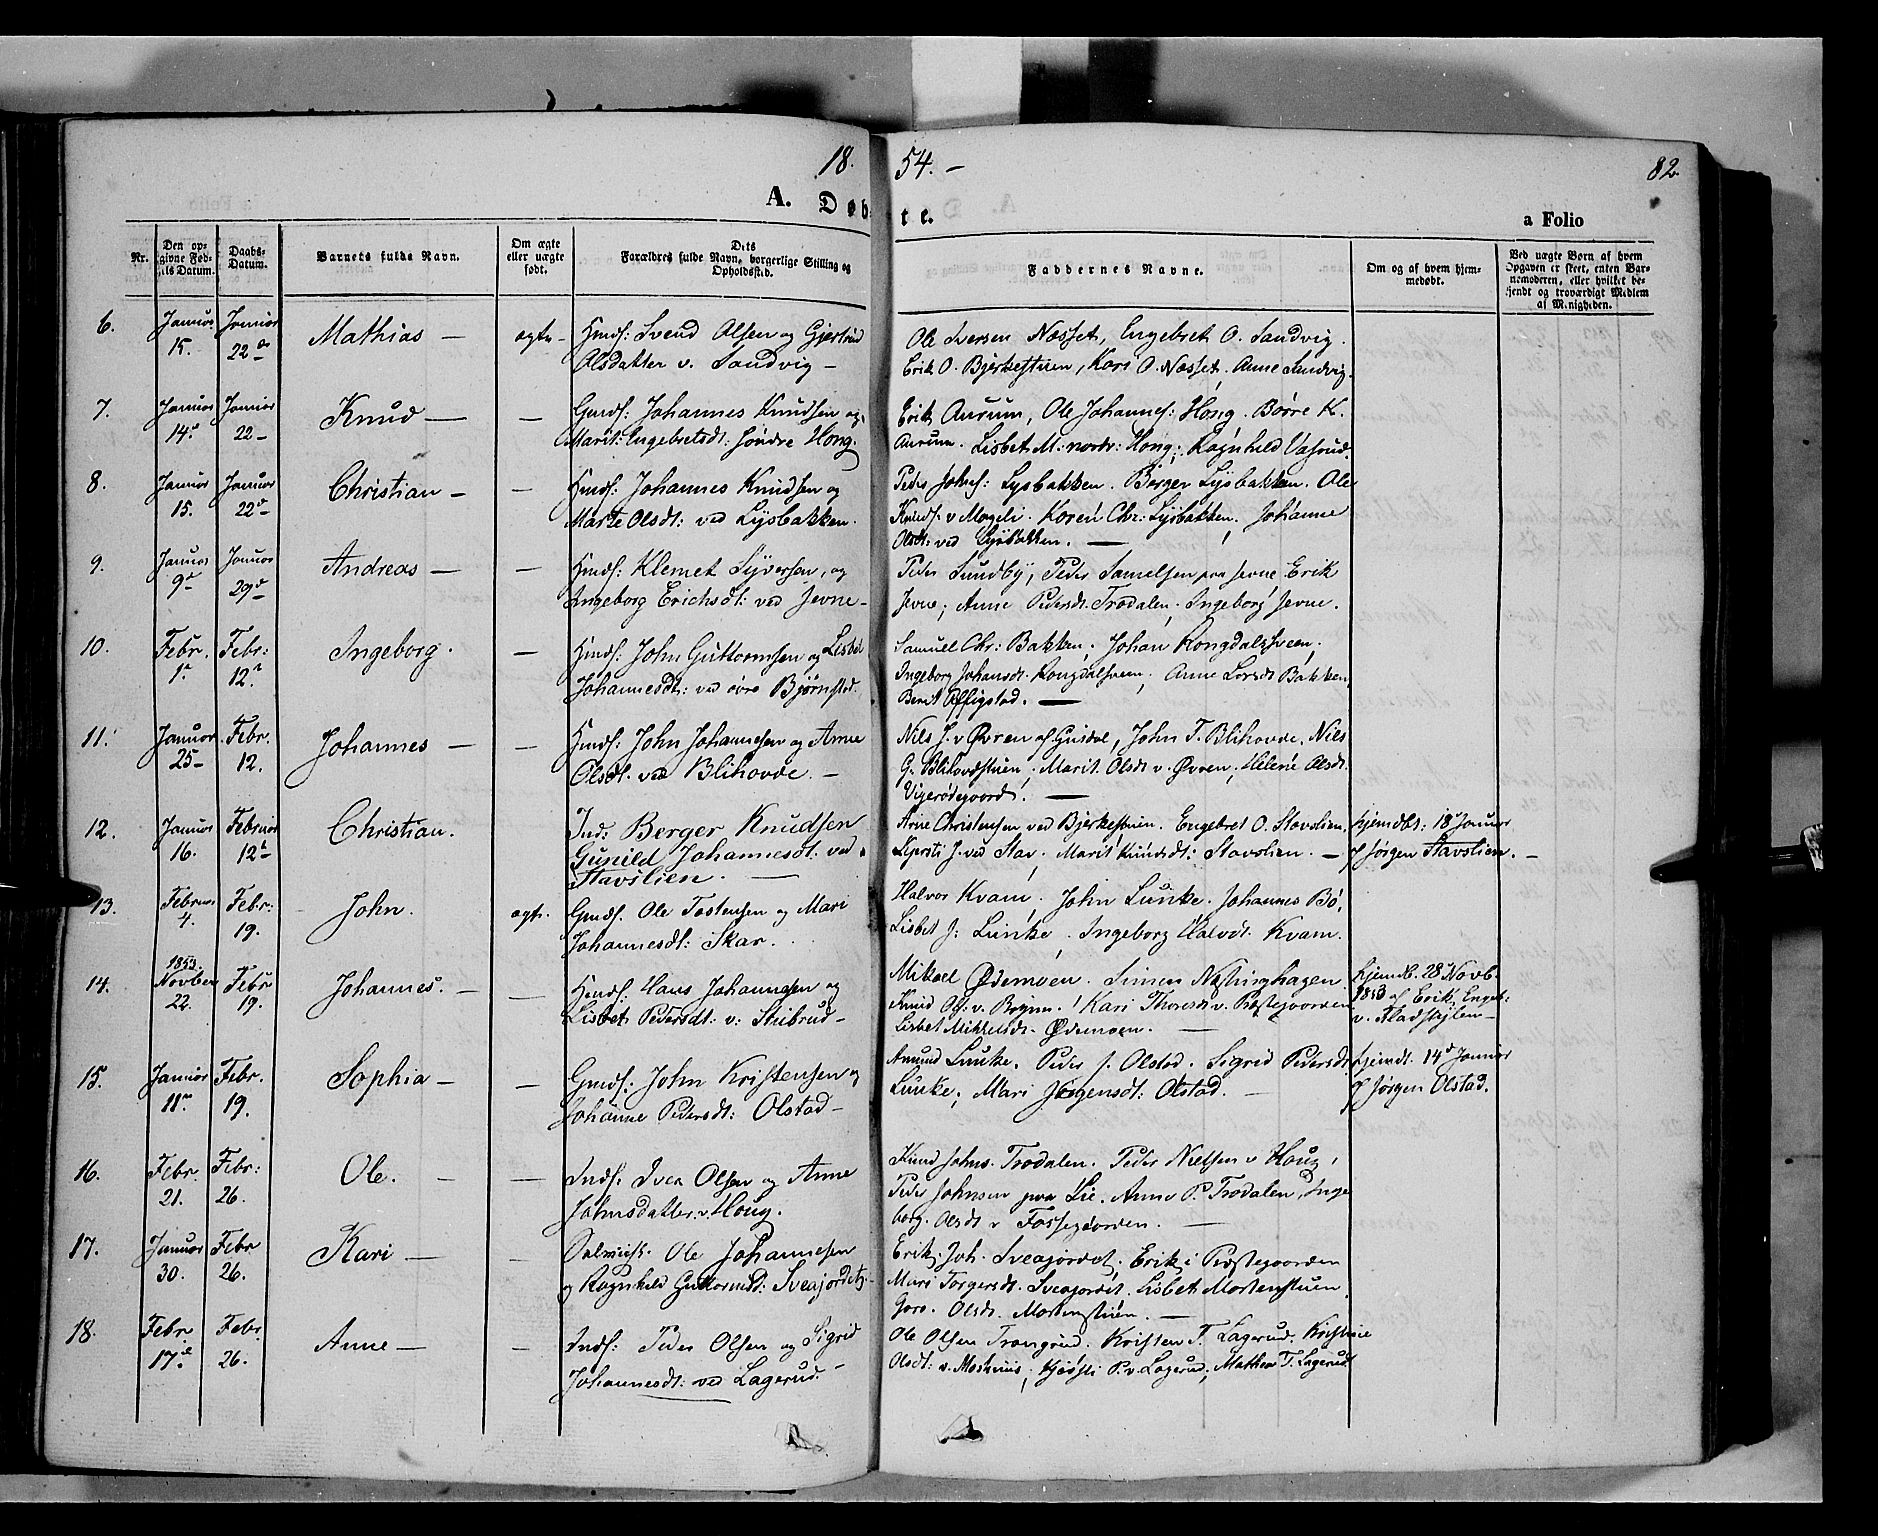 18. 54. — 82
A. Døbte. a Folio
Nr.
Den opgivne Fødsels Datum.
Daabs-Datum.
Barnets fulde Navn.
Om ægte eller uægte født.
Dets Forældres fulde Navn, borgerlige Stilling og Opholdssted.
Faddernes Navne.
Om og af hvem hjemmedøbt.
Ved uægte Børn af hvem Opgaven er skeet, enten Barnemoderen, eller hvilket bekjendt og troværdigt Medlem af Menigheden.
6. Januar 15. Januar 22de Mathias — ægte — Hmdf: Svend Olsen og Gjertrud
Olsdatter v. Sandvig —
Ole Iversen Næsset, Engebret O. Sandvig.
Erik O. Bjerkestuen, Kari O. Næsset, Anne Sandvig.
7. Januar 14de Januar 22 — Knud — — Gmdf: Johannes Knudsen og
Marit Engebretsdt: søndre Houg.
Erik Aurum, Ole Johannes: Houg. Børre K.
Aurum. Lisbet M: nordr: Houg; Ragnhild Vasrud.
8. Januar 15. Januar 22de Christian — — Hmdf: Johannes Knudsen og
Marte Olsdt: ved Lysbakken.
Peder Johs: Lysbakken. Børger Lysbakken. Ole
Knuds. v Mageli. Karen Chr: Lysbakken. Johanne
Olsdt: ved Lysbakken. —
9. Januar 9de Januar 29de Andreas — — Hmdf: Klemet Syversen, og
Ingeborg Erichsdt: ved Jevne —
Peder Sundby, Peder Samelsen paa Jevne Erik
Jevne; Anne Pedersdt. Trodalen. Ingeborg Jevne.
10. Febr. 1. Febr: 12. Ingeborg. — Hmdf: John Guttormsen og Lisbet
Johannesdt: ved øvre Bjørnstad.
Samuel Chr: Bakken, Johan Rongdalsveen,
Ingeborg Johansdt. Rongdalsveen, Anne Larsdt Bakken,
Berit
11. Januar 25 — Febr. 12. Johannes — — Hmdf: John Johannesen og Anne
Olsdt. ved Blihovde. —
Nils J. v Øvren af Gusdal, John T. Blihovde, Nils
G. Blihovdstuen, Marit Olsdt v. Øvren, Helene Olsdt.
Vigerødegaard. —
12. Januar 16. Februar 12te Christian. Ind: Berger Knudsen
Gunild Johannesdt. ved
Stavslien. —
Arne Christensen ved Bjerkestuen. Engebret O. Stavslien,
Kjersti J. ved Stav. Marit Knudsdt: Stavslien. —
Hjemdbt: 18 Januar
af Jørgen Stavslien. —
13. Februar 4. Febr: 19. John. ægte. Gmdf. Ole Tostensen og Mari
Johannesdt: Skar.
Halvor Kvam. John Lunke. Johannes Bø,
Lisbet J: Lunke. Ingeborg Halvdt. Kvam.
14. 1853. Novber 22. Febr 19. Johannes. — — Hmdf: Hans Johannesen og
Lisbet Pedersdt: v: Stubrud —
Mikael Ødemoen. Simen Næstinghagen
Knud v. Kari Thoresdt v. Præstegaarden
Lisbet Mikkelsdt. Ødemoen. —
Hjemdb. 28 Novb.
1853 af Erik Engeb:
v. Fladskjelen —
15. Januar 11 Febr. 19. Sophia — — Gmdf: John Kristensen og
Johanne Pedersdt: Olstad —
Amund Lunke. Peder J. Olstad. Sigrid Pedersdt
Lunke; Mari Jørgensdt: Olstad. —
Hjemdt. 14de Januar
af Jørgen Olstad.
16. Febr 21. Febr: 26. Ole. — — Indf: Iver Olsen og Anne
Johnsdatter v. Houg.
Knud Johns. Trodalen. Peder Nielsen v Houg,
Peder Johnsen paa Lie. Anne P. Trodalen, Inge
borg. Olsdt v Fossegaarden. —
17. Januar 30. Febr 26. Kari — — Ole Johannesen
og Ragnhild Guttormsd: Sveajordet —
Erik Joh. Sveajordet, Erik i Præstegaarden
Mari Torgersdt. Sveajordet. Lisbet Mortenstuen,
Goro. Olsdt. Mortenstuen. —
18. Febr 17de Febr 26. Anne — — Indf: Peder Olsen og Sigrid
Johannesdt: ved Lagerud. —
Ole Olsen Trangrud. Kristen T. Lagerud. Kristine
Olsdt: v. Moshuus; Kjersti P. v. Lagerud; Mathea T. Lagerud